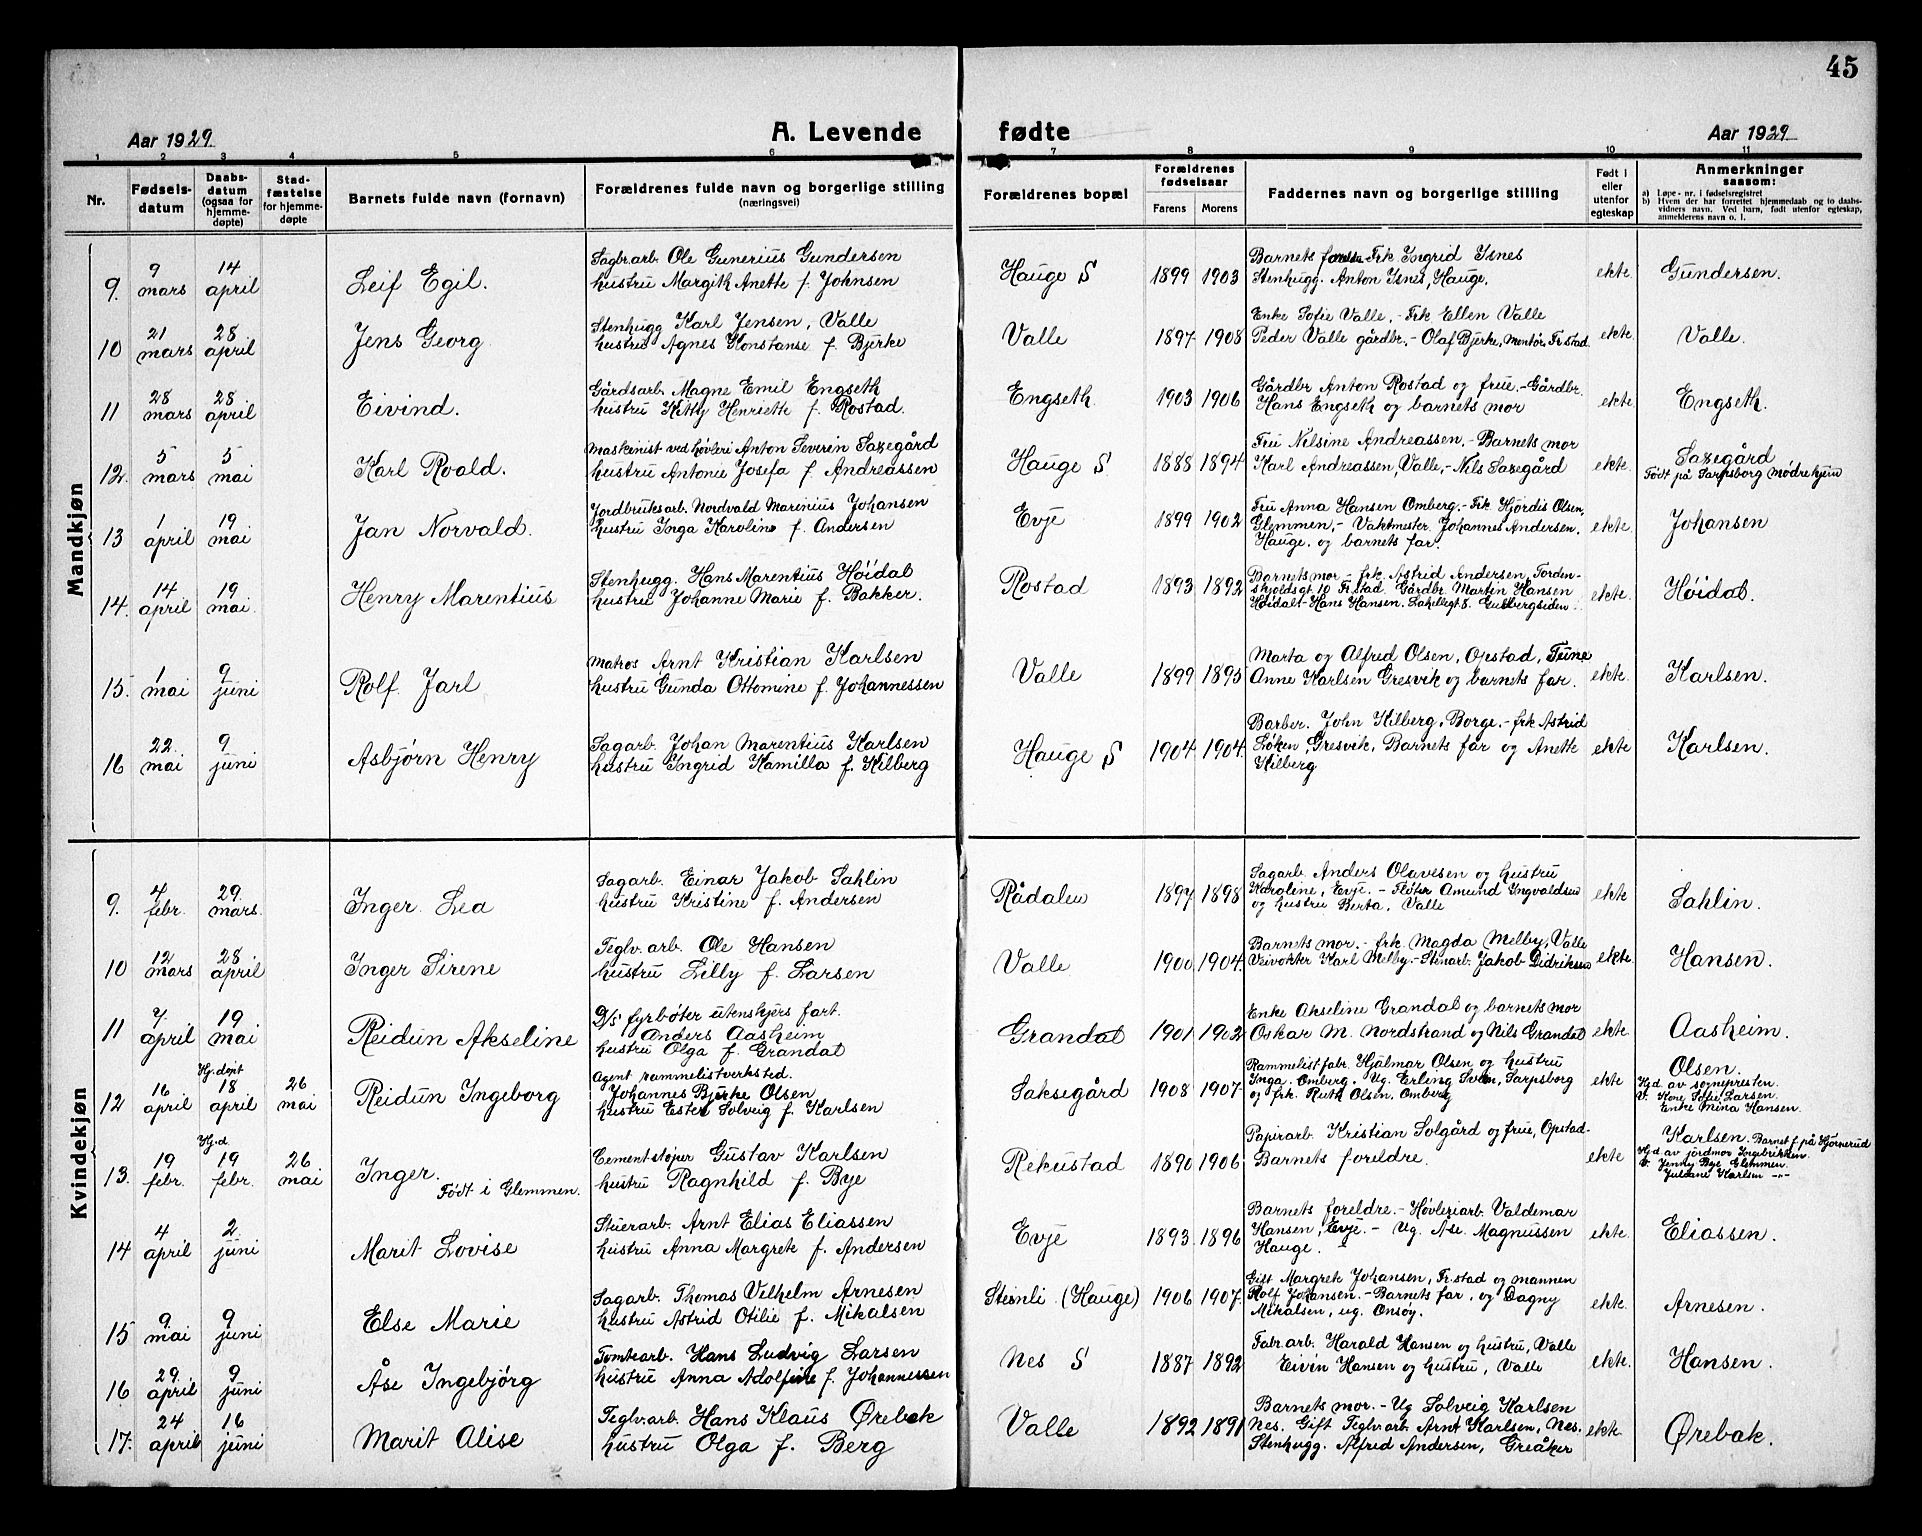 45
Aar 1929. A. Levende fødte Aar 1929
1 2 3 4 5 6 7 8 9 10 11
Nr. Fødsels-datum Daabs-datum (ogsaa for hjemme-døpte) Stad-fæstelse for hjemme-døpte Barnets fulde navn (fornavn) Forældrenes fulde navn og borgerlige stilling (næringsvei) Forældrenes bopæl Forældrenes fødselsaar Farens Morens Faddernes navn og borgerlige stilling Født i eller utenfor egteskap Anmerkninger saasom:
a) Løpe-nr. i fødselsregistret
b) Hvem der har forrettet hjemmedaab og to daabs-vidners navn. Ved barn, født utenfor egteskap, anmelderens navn o. l.
Mandkjøn
9. 9 mars 14 april Leif Egil. Sagbr.arb. Ole Gunerius Gundersen
hustru Margith Anette f. Johnsen Hauge S 1899 1903 Barnets Frk Ingrid Isnes
Stenhugg. Anton Isnes, Hauge. ekte Gundersen.
10 21 mars 28 april Jens Georg Stenhugg Karl Jensen, Valle
hustru Agnes Konstanse f. Bjerke Valle 1897 1908 Enke Sofie Valle. - Frk Ellen Valle
Peder Valle gårdbr. - Olaf Bjerke, Montør, Fr.stad ekte Valle.
11 28 mars 28 april Eivind. Gårdsarb. Magne Emil Engseth
hustru Kitty Henriette f. Rostad. Engseth 1903 1906 Gårdbr Anton Rostad og frue. - Gårdbr.
Hans Engseth og barnets mor ekte Engseth.
12. 5 mars 5 mai Karl Roald. Maskinist ved høvleri Anton Severin Saxegård
hustru Antonie Josefa f. Andreassen Hauge S 1888 1894 Fru Nilsine Andreassen. - Barnets mor
Karl Andreassen, Valle, - Nils Saxegård ekte Saxegård
Født på Sarpsborg Mødrehjem
13 1 april 19 mai Jan Norvald. Jordbruksarb. Nordvald Marenius Johansen
hustru Inga Karoline f. Andersen Evje 1899 1902 Fru Anna Hansen Omberg. - Frk Hjørdis Olsen,
Glemmen, - Vaktmester Johannes Andersen.
Hauge. og barnets far. ekte Johansen
14. 14 april 19 mai. Henry Marentius Stenhugg. Hans Marentius Höidal
hustru Johanne Marie f. Bakker. Rostad 1893 1892 Barnets mor - frk. Astrid Andersen, Torden-
skjoldsgt 10 Fr.stad. Gårdbr. Martin Hansen
Höidal - Hans Hansen. Lakellegt 8. Gudbergsiden ekte. Höidal.
15. 1 mai 9 juni Rolf Jarl Matros Arnt Kristian Karlsen
hustru Gunda Ottomine f. Johannessen Valle 1899 1895 Marta og Alfred Olsen, Opstad, Trine
Anne Karlsen Gresvik og barnets far. ekte. Karlsen.
16 22. mai 9 juni Asbjørn Henry Sagarb. Johan Marentius Karlsen
hustru Ingrid Kamilla f. Kilberg Hauge S 1904 1904. Barber. John Kilberg, Borge. - frk Astrid
Løken, Gresvik, Barnets far og Anette
Kilberg ekte Karlsen.
Kvindekjøn
9. 4 febr. 29. mars. Inger Lea Sagarb. Einar Jakob Sahlin
hustru Kristine f. Andersen Rådalen 1897 1898 Sagarb. Anders Olavesen og hustru
Karoline, Evje. - Fløter Amund Ingvaldsen
og hustru Berta. Valle ekte Sahlin.
10 12 mars 28 april Inger Sirene Teglv.arb. Ole Hansen
hustru Lilly f. Larsen Valle 1900 1904. Barnets mor. - frk. Magda Melby, Valle
Veivokter Karl Melby. - Stenarb. Jakob Didriksen ekte. Hansen.
11 7. april 19 mai Reidun Akseline D/S fyrbøter utenskjers fart.
Anders Aasheim
hustru Olga f. Grandal Grandal 1901 1902 Enke Akseline Grandal og barnets mor
Oskar M. Nordstrand og Nils Grandal ekte Aasheim.
12 16 april Hj.døpt 18 april 26 mai Reidun Ingeborg Agent rammelistverksted.
Johannes Bjerke Olsen
hustru Ester Solveig f. Karlsen Saksegård 1908 1907. Rammelistfabr Hjalmar Olsen og hustru
Inga. Omberg. Ug. Erling Sven, Sarpsborg
og frk. Ruth Olsen. Omberg ekte Olsen.
Hj.d av sognepresten.
V. Kone Sofie Larsen.
Enke Mina Hansen.
13. 19 febr. Hj.d. 19 febr. 26 mai Inger. Født i Glemmen. Cementstøper Gustav Karlsen
hustru Ragnhild f. Bye Rekustad 1890 1906 Papirarb. Kristian Solgård og frue, Opstad.
Barnets foreldre. ekte Karlsen. Barnet f. på Hjørnerud
Hj.d av jordmor Ingebriktsen.
V. Jenny Bye Glemmen.
Juliane Karlsen -"-
14 4 april 2 juni Marit Lovise Stuerarb. Arnt Elias Eliassen
hustru Anna Margrete f. Andersen Evje 1893 1896 Barnets foreldre. - Høvleriarb. Valdemar
Hansen, Evje. - Ug. Åse Magnussen
Hauge. ekte. Eliassen.
15 9. mai 9 juni Else Marie Sagarb. Thomas Vilhelm Arnesen
hustru Astrid Otilie f. Mikalsen Stenli (Hauge) 1906 1907. Gift Margrete Johansen, Fr.stad og mannen
Rolf Johansen. - Barnets far, og Dagny
Mikalsen, ug. Onsøy. ekte. Arnesen.
16 29. april 9 juni Åse Ingebjørg Tomtearb. Hans Ludvig Larsen
hustru Anna Adolfine f. Johannessen Nes S 1887 1892 Fabr.arb. Harald Hansen og hustru, Valle
Eivin Hansen og hustru, Valle ekte. Hansen.
17. 24 april 16 juni Marit Alise Teglv.arb. Hans Klaus Ørebak
hustru Olga f. Berg Valle 1892 1891 Barnets mor. - Ug Solveig Karlsen
Nes. Gift Teglv.arb. Arnt Karlsen, Nes.
Stenhugg. Alfred Andersen, Greåker ekte. Ørebak.